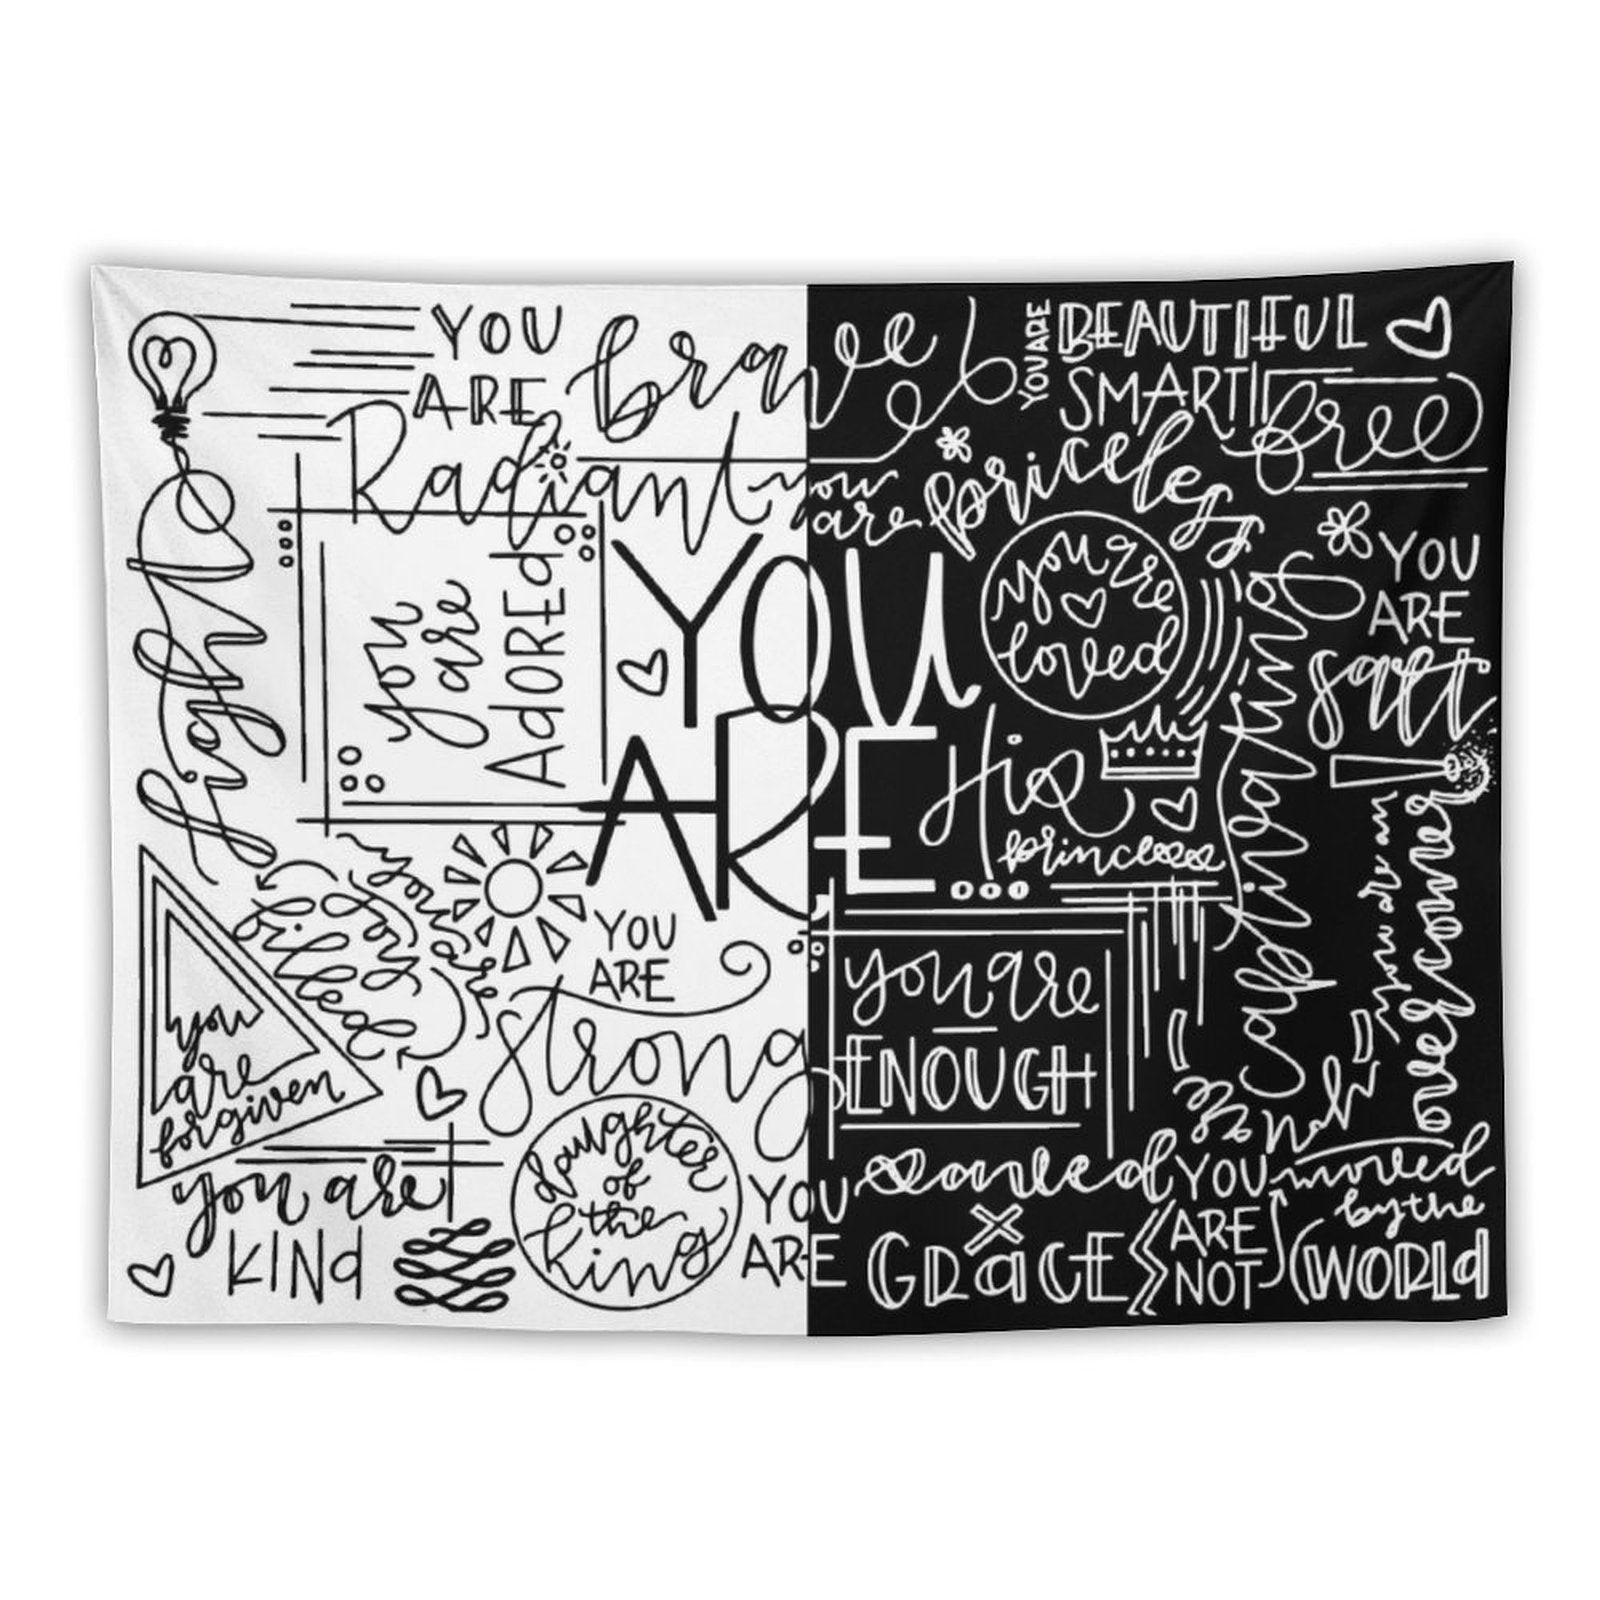 YOU
ARE
brave
Radiant
light
you
are
AdOREd
YOU
ARE
you are
BEAUTIFUL
SMART
free
you
are
priceless
you're
loved
YOU
ARE
salt
His
princess
captivating
you are an
overcomer
you are
joy
filled
you
are
forgiven
YOU
ARE
strong
you are
ENOUGH
you are
KINd
daughter
of
the
king
YOU
ARE
saved
x
GRaCE
YOU
ARE
NOT
moved
by the
WORLd